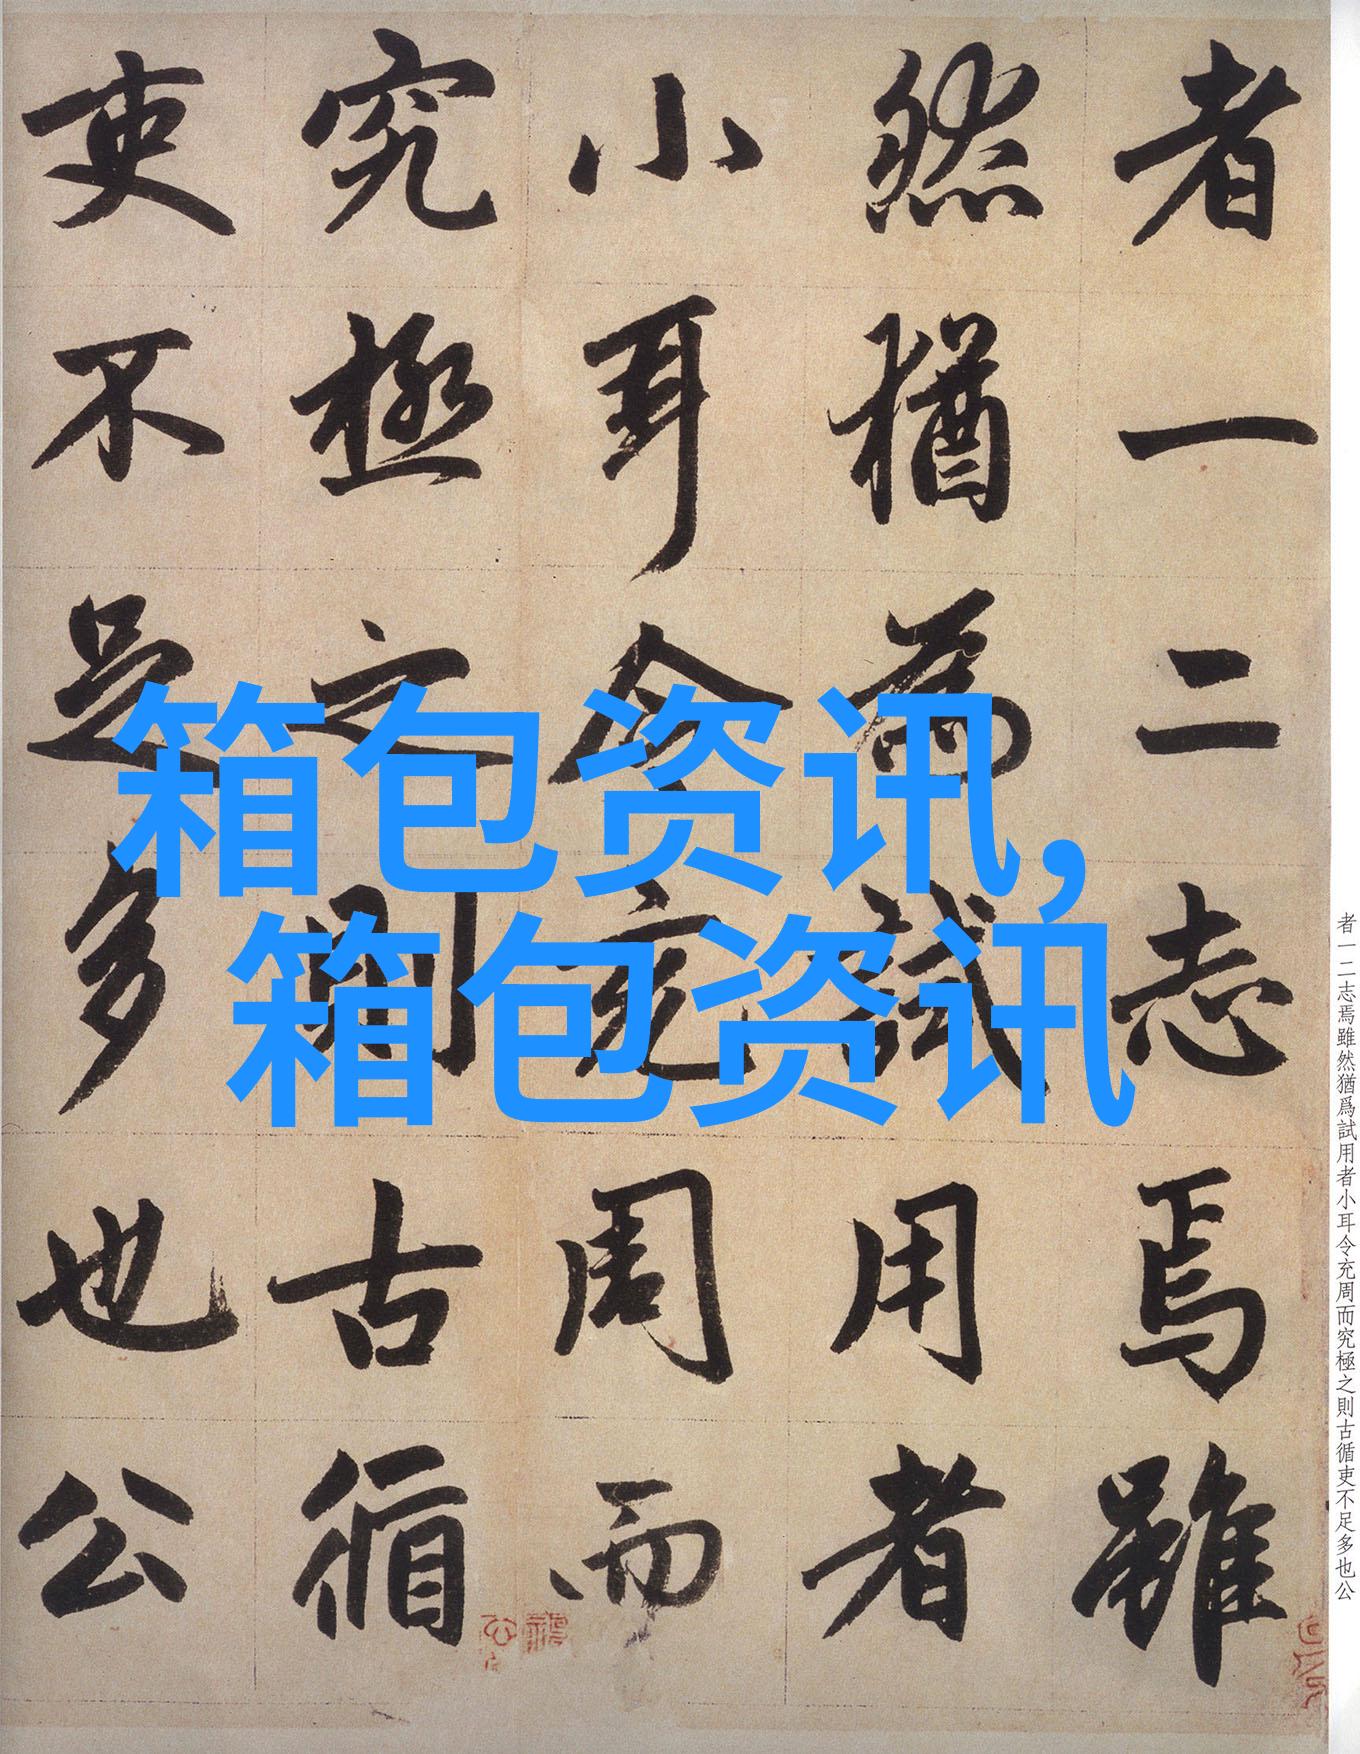 箱包资讯,
箱包资讯
者一二志焉雖
然猶為試用者
小耳令充周而
究極之則古循
吏不足多也公
者一二志焉雖然猶爲試用者小耳令充周而究極之則古循吏不足多也公